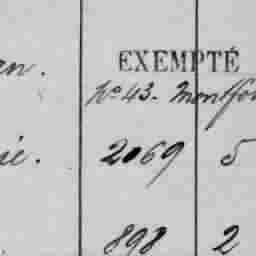 EXEMPTÉ
en.
No 43. Montfor
ie. 2069 5
898 2